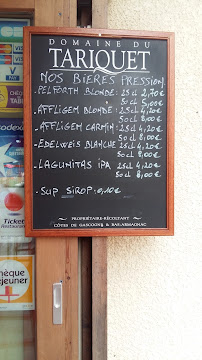 DOMAINE DU
TARIQUET
NOS BIÈRES PRESSION
-PELFORTH BLONDE: 25 cl 2,70€
50 cl 5,00€
-AFFLIGEM BLONDE: 25 cl 4,20
50 cl 8,00€
-AFFLIGEM CARMIN: 25 cl 4,20
50 cl 8,00€
-EDELWEIS BLANCHE 25 cl 4,20
50 cl 8,00€
-LAGUNITAS IPA 25 cl 4,20
50 cl 8,00€
-SUP SIROP: 0,10€
PROPRIÉTAIRE-RÉCOLTANT
CÔTES DE GASCOGNE & BAS-ARMAGNAC
Ticket
Restaurant
chèque
déjeuner